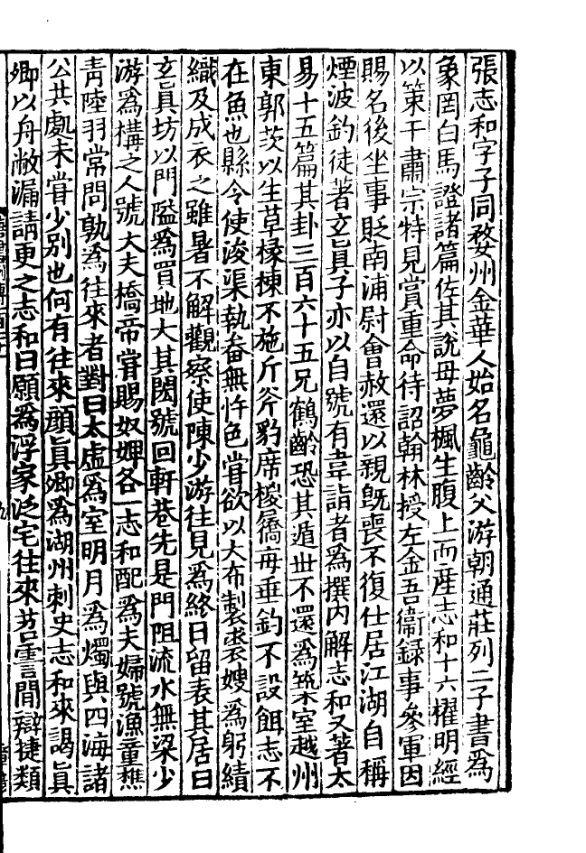 張志和字子同婺州金華人始名龜齡父游朝通莊列二子書爲
象罔白馬證諸篇佐其說母夢楓生腹上而產志和十六擢明經
以策干肅宗特見賞重命待詔翰林授左金吾衛錄事參軍因
賜名後坐事貶南浦尉會赦還以親旣喪不復仕居江湖自稱
煙波釣徒著玄眞子亦以自號有韋詣者爲撰內解志和又著太
易十五篇其卦三百六十五兄鶴齡恐其遁世不還爲築室越州
東郭茨以生草椽棟不施斤斧豹席㯶屩每垂釣不設餌志不
在魚也縣令使浚渠執畚無忤色嘗欲以大布製裘嫂爲躬績
織及成衣之雖暑不解觀察使陳少游往見爲終日留表其居曰
玄眞坊以門隘爲買地大其閎號回軒巷先是門阻流水無梁少
游爲構之人號大夫橋帝嘗賜奴婢各一志和配爲夫婦號漁童樵
靑陸羽常問孰爲往來者對曰太虛爲室明月爲燭與四海諸
公共處未嘗少別也何有往來顏眞卿爲湖州刺史志和來謁眞
卿以舟敝漏請更之志和曰願爲浮家泛宅往來苕霅間辯捷類